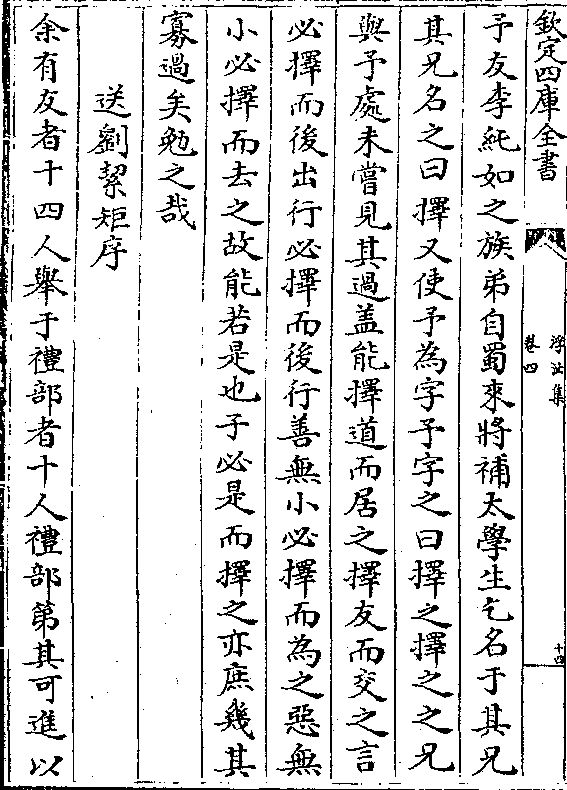 欽定四庫全書
浮沚集
卷四
十四
予友李純如之族弟自蜀來將補太學生乞名于其兄
其兄名之曰擇又使予為字予字之曰擇之擇之之兄
與予處未嘗見其過盖能擇道而居之擇友而交之言
必擇而後出行必擇而後行善無小必擇而為之惡無
小必擇而去之故能若是也子必是而擇之亦庶幾其
寡過矣勉之哉
送劉絜矩序
余有友者十四人舉于禮部者十人禮部第其可進以